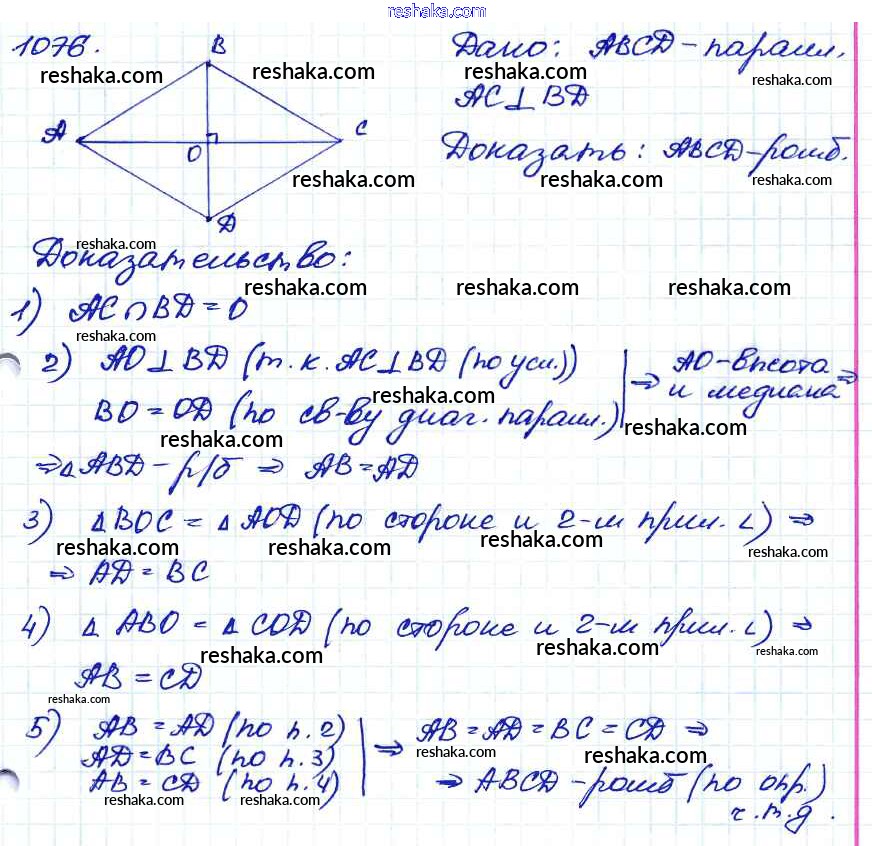 reshaka.com
1076.
B
Дано: ABCD - паралл.
reshaka.com reshaka.com reshaka.com
AC ⊥ BD
A
C
O
Доказать: ABCD - ромб.
reshaka.com reshaka.com reshaka.com
D
reshaka.com
Доказательство:
reshaka.com reshaka.com reshaka.com
1) AC ∩ BD = O
reshaka.com
2) AO ⊥ BD (т.к. AC ⊥ BD (по усл.)) | ⇒ AO - высота
BO = OD (по св-ву диаг. паралл.) | и медиана ⇒
reshaka.com
reshaka.com reshaka.com
⇒ △ABD - р/б ⇒ AB = AD
3) △BOC = △AOD (по стороне и 2-м прил. ∠) ⇒
reshaka.com reshaka.com reshaka.com reshaka.com
⇒ AD = BC
4) △ABO = △COD (по стороне и 2-м прил. ∠) ⇒
reshaka.com reshaka.com reshaka.com
AB = CD
reshaka.com
5) AB = AD (по п. 2) | ⇒ AB = AD = BC = CD ⇒
AD = BC (по п. 3)
reshaka.com reshaka.com reshaka.com
AB = CD (по п. 4) ⇒ ABCD - ромб (по опр.)
reshaka.com reshaka.com
ч.т.д.